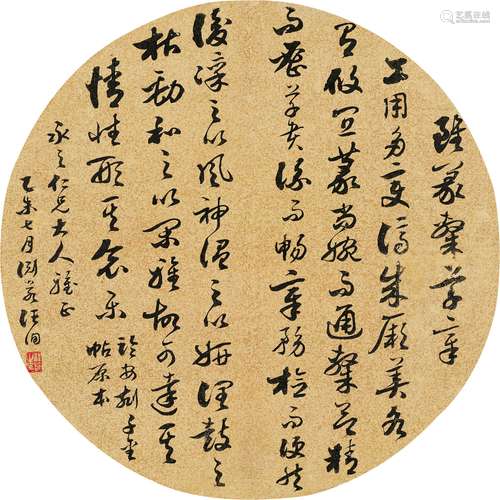 雖篆隸草章
工用多變濟成厥美各
有攸宜篆尚婉而通隸欲精
而密草貴流而暢章務檢而便然
後凜之以風神溫之以妍潤鼓之
枯勁和之以閑雅故可達其
情性形其哀樂
帖原本
永之仁兄大人雅正
乙未七月淵若汪洵
艺狐在线